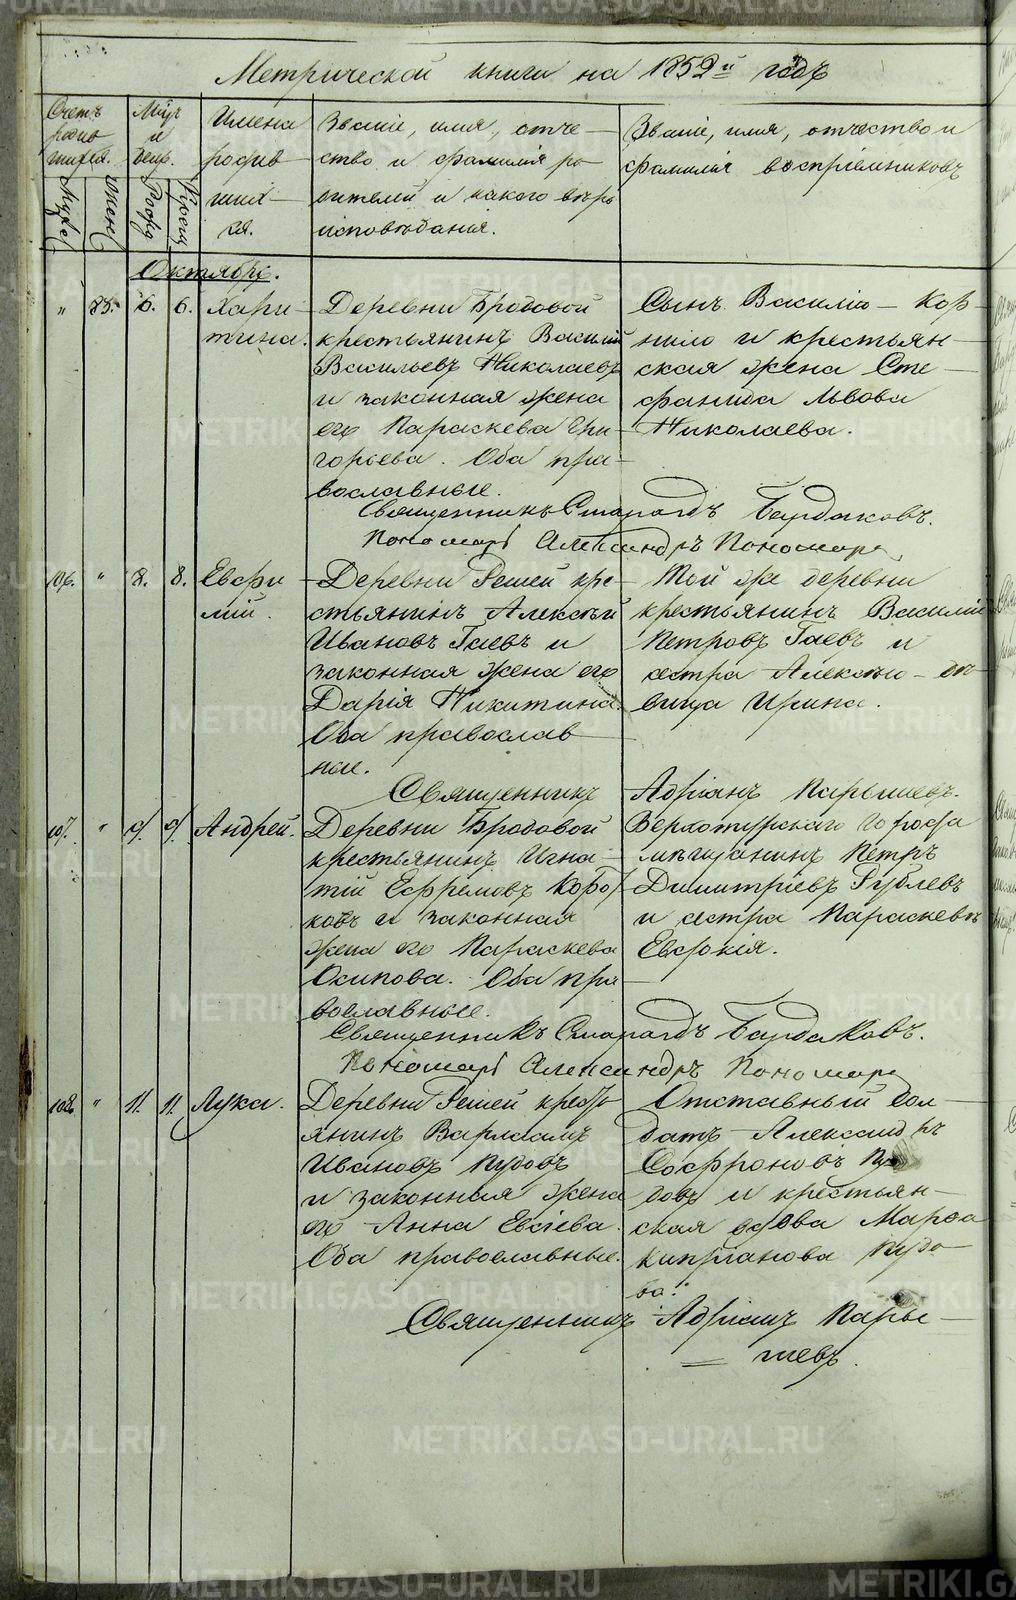 Метрической книги на 1852й годъ
Счетъ родившихся.
Муж. Женс.
Мѣсяцъ и день.
Рожд. Крещ.
Имена родившихся.
Званіе, имя, отче-
ство и фамилія ро-
дителей и какого вѣро
исповѣданія.
Званіе, имя, отчество и
фамилія воспріемниковъ
Октябрь.
" 85. 6. 6. Хари-
тина.
Деревни Бродовой
крестьянинъ Василій
Васильевъ Николаевъ
и законная жена
его Параскева Гри-
горьева. Оба пра-
вославные.
Сынъ Василію – Кор-
нило и крестьян-
ская жена Сте-
фанида Львова
Николаева.
Священникъ Смарагдъ Бардаковъ.
Пономарь Александръ Пономарев
106. " 8. 8. Евфи
мій.
Деревни Гаевй кре-
стьянинъ Алексѣй
Ивановъ Гаевъ и
законная жена его
Дарія Никитина.
Оба православ-
ные.
Той же деревни
крестьянинъ Василій
Петровъ Гаевъ и
сестра Алексѣю – дѣ-
вица Ирина.
Священникъ Адріанъ Парышевъ.
107. " 9. 9. Андрей.
Деревни Бродовой
крестьянинъ Игна-
тій Ефремовъ Коро-
ковъ и законная
жена его Параскева
Осипова. Оба пра-
вославные.
Верхотурскаго города
мѣщанинъ Петръ
Димитріевъ Рублевъ
и сестра Параскевѣ
Евфросинія.
Священникъ Смарагдъ Бардаковъ.
Пономарь Александръ Пономарев
108. " 11. 11. Лука.
Деревни крестьянинъ Варлаамъ
Ивановъ Пудовъ
и законная жена
его Анна Евсіева.
Оба православные.
Отставный сол-
датъ Александръ
Софроновъ Пу-
довъ и крестьян-
ская вдова Марфа
Кипріанова Пудо-
ва.
Священникъ Адріанъ Пары-
шевъ.
METRIKI.GASO-URAL.RU